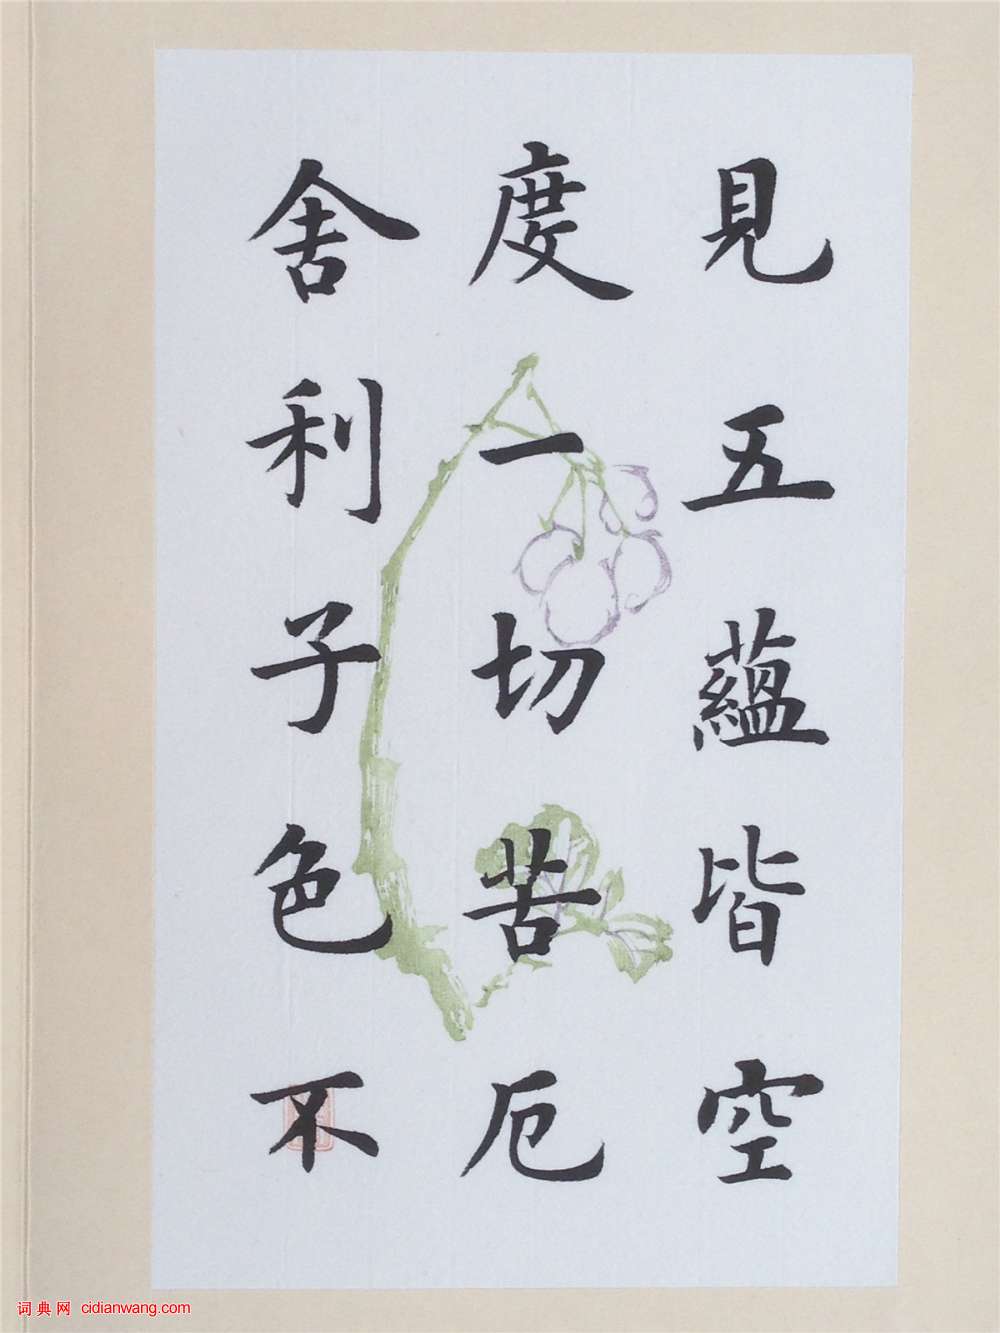 見五蘊皆空
度一切苦厄
舍利子色不
词典网 cidianwang.com